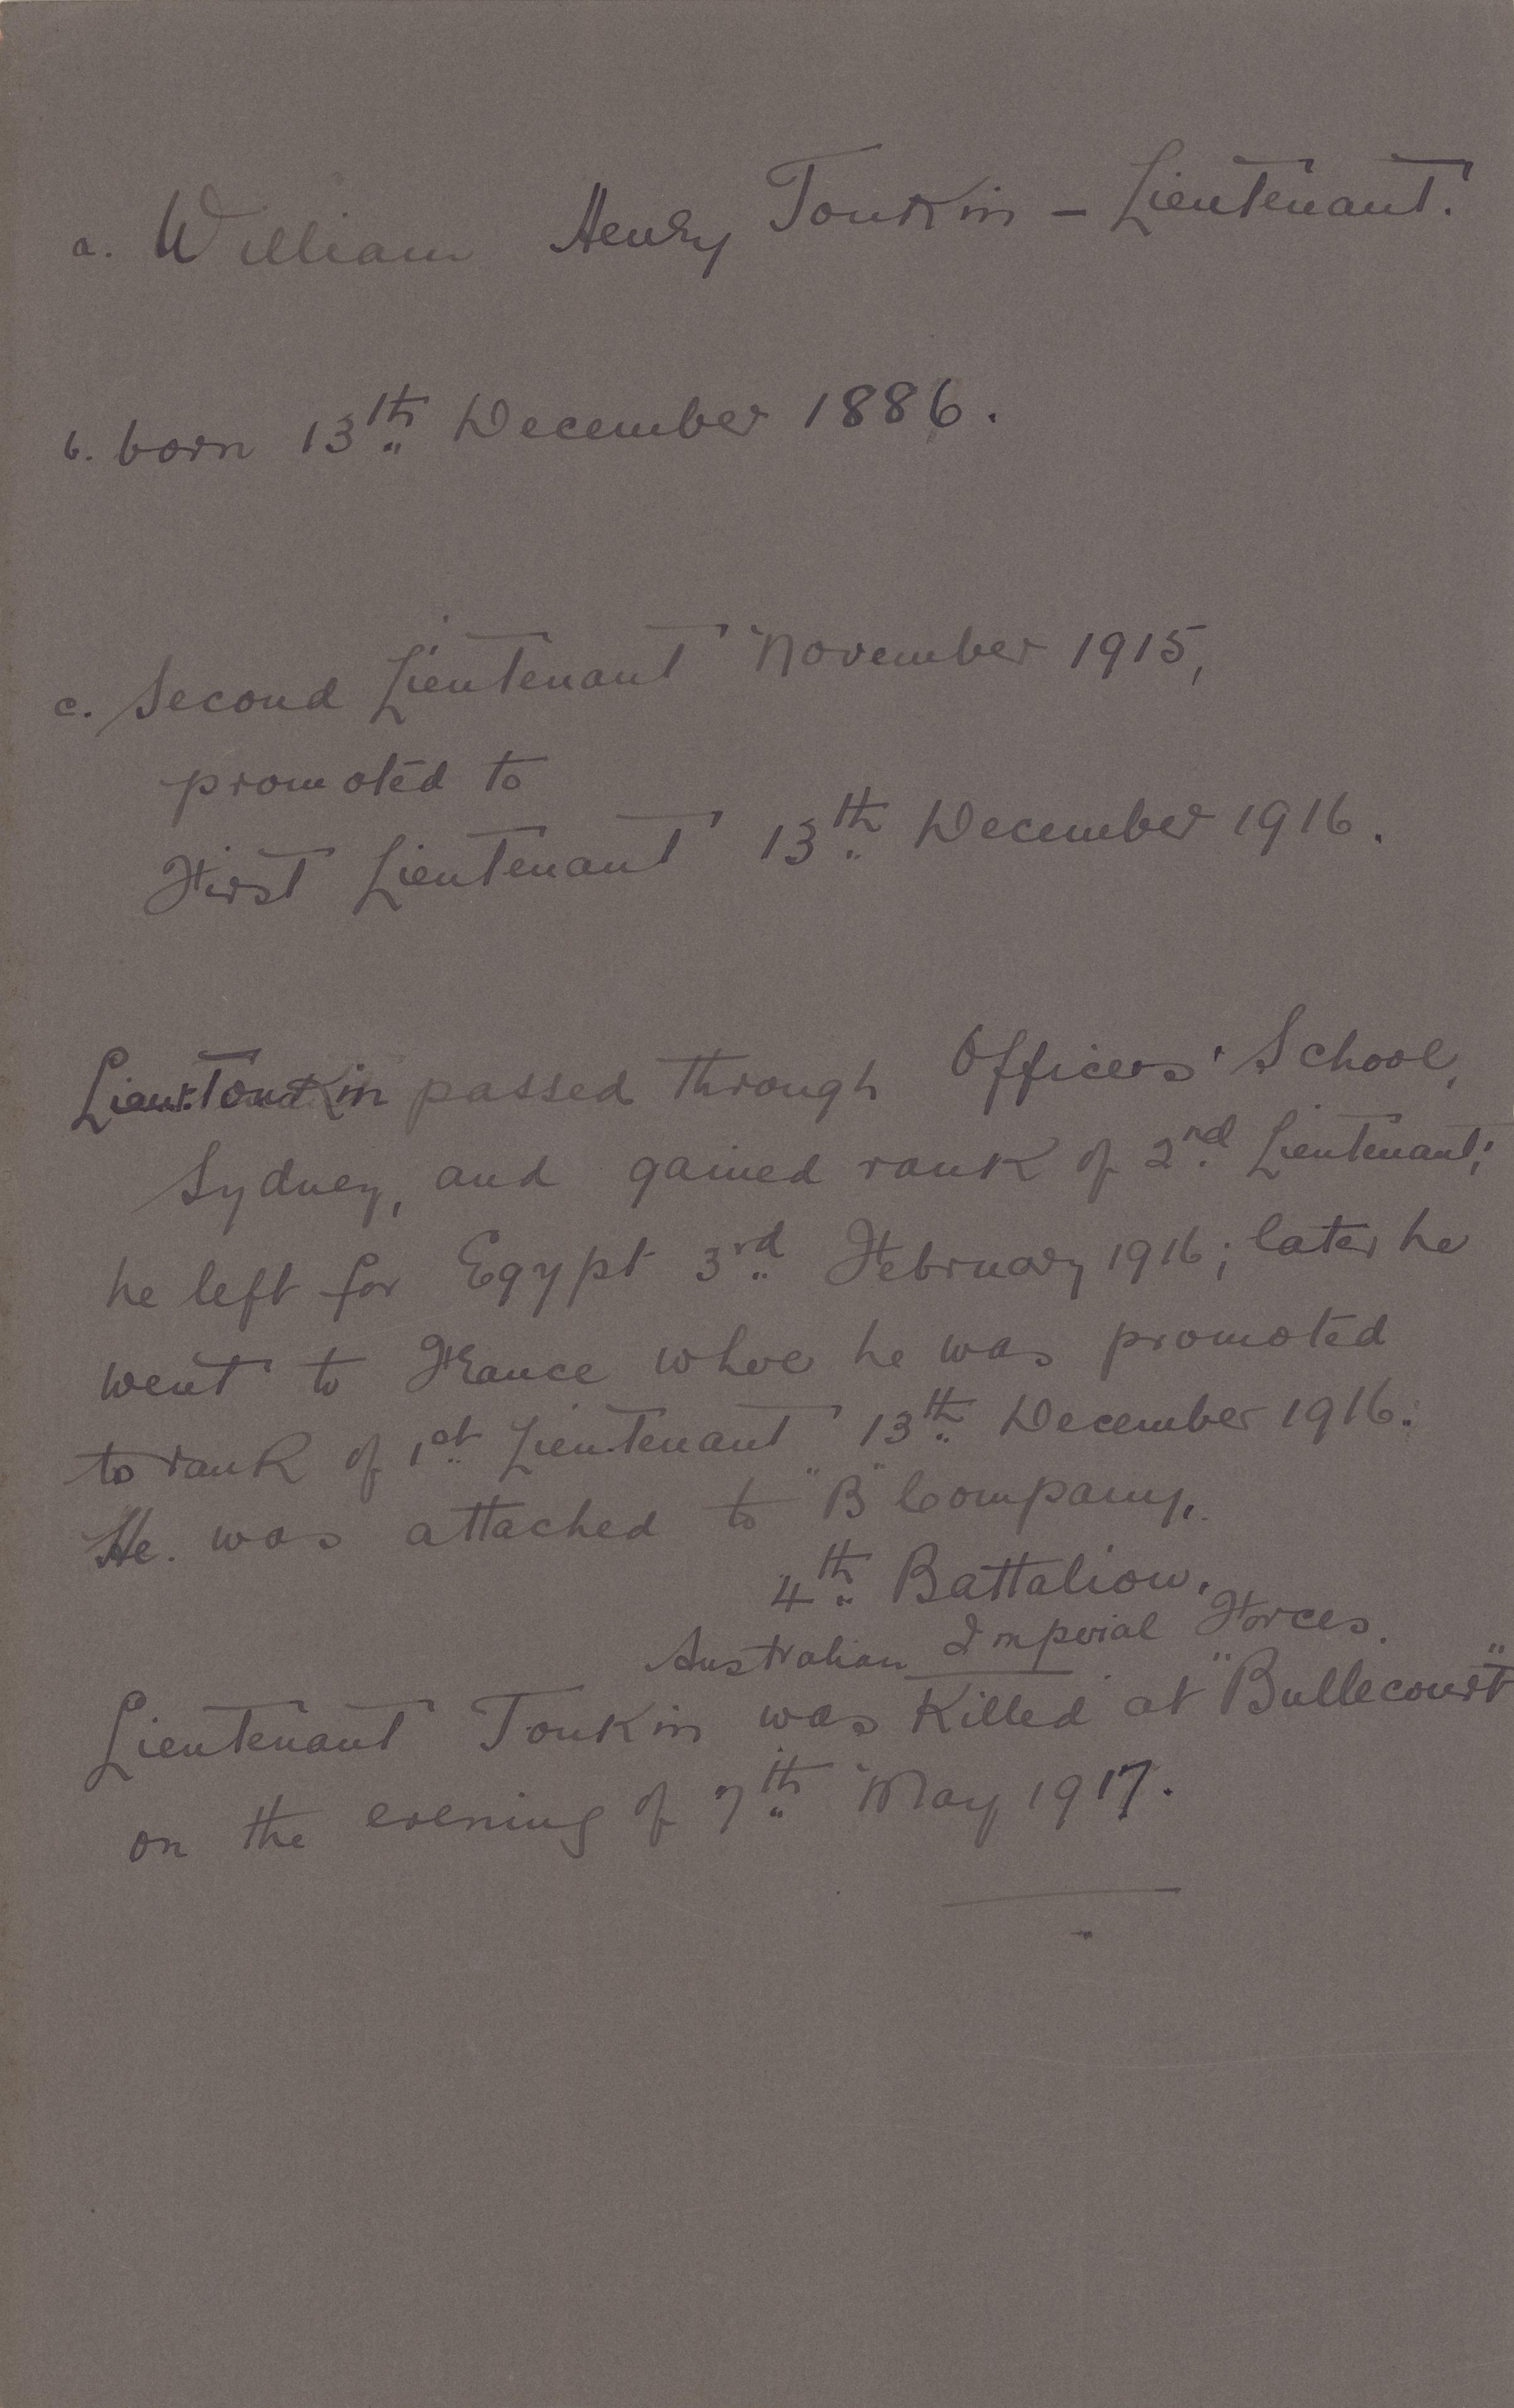 a. William Henry Tonkin - Lieutenant.
b. born 13th December 1886.
c. Second Lieutenant November 1915,
promoted to
First Lieutenant 13th December 1916.
Lieut. Tonkin passed through Officers' School,
Sydney, and gained rank of 2nd Lieutenant;
he left for Egypt 3rd February 1916; later he
went to France where he was promoted
to rank of 1st Lieutenant 13th December 1916.
He was attached to "B" Company,
4th Battalion,
Australian Imperial Forces.
Lieutenant Tonkin was Killed at "Bullecourt"
on the evening of 7th May 1917.